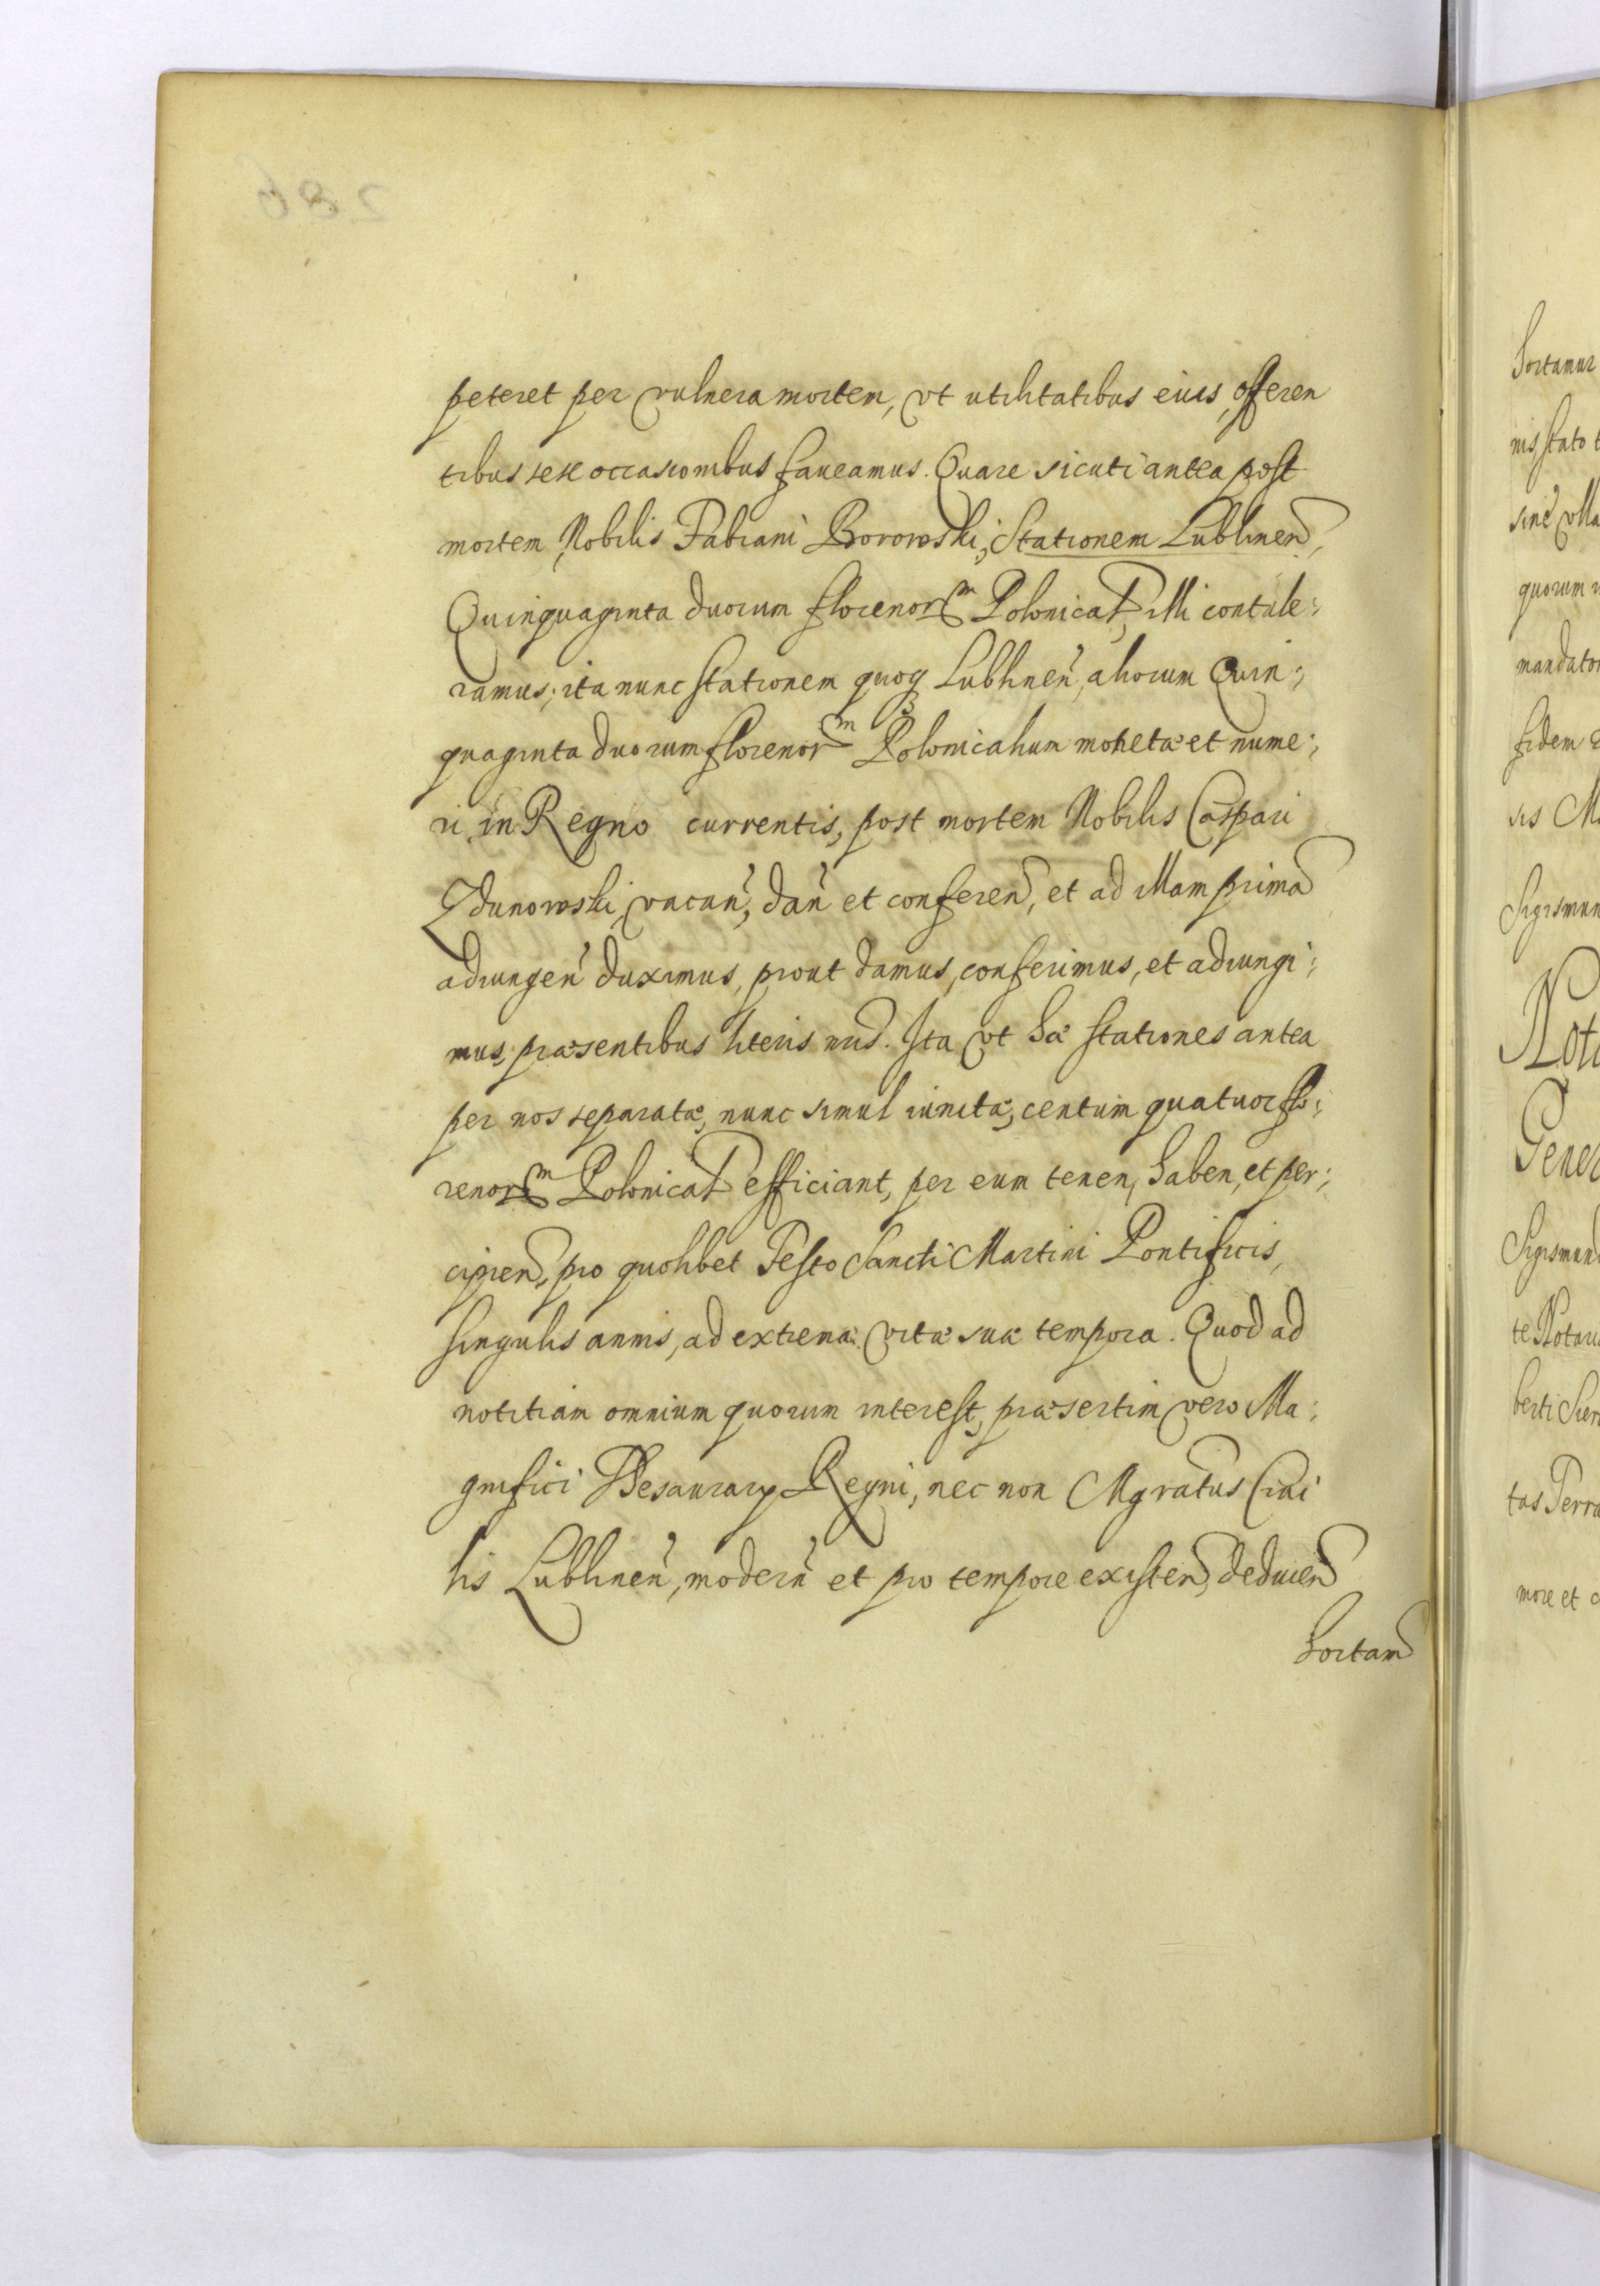 peteret per vulnera mortem, vt utilitatibus eius, offeren
tibus sese occasionibus faueamus. Quare sicuti antea post
mortem Nobilis Fabiani Borowski, Stationem Lublinen,
Quinquaginta duorum florenorm Polonical, illi contule:
ramus; ita nunc stationem quoq Lublinen, aliorum Quin:
quaginta duorum florenorm Polonicalium monetæ et nume:
ri in Regno currentis, post mortem Nobilis Caspari
Zdunowski vacan, dan et conferen, et ad illam prima
adiungen duximus, prout damus, conferimus, et adiungi:
mus, præsentibus literis nris. Ita vt hæ stationes antea
per nos separatæ, nunc simul iunctæ, centum quatuor flo:
renorm Polonical efficiant, per eum tenen, haben, et per:
cipien, pro quolibet Festo Sancti Martini Pontificis,
singulis annis, ad extrema vitæ suæ tempora. Quod ad
notitiam omnium quorum interest, præsertim vero Ma:
gnifici Thesaurarij Regni, nec non Mgratus Ciui
lis Lublinen, modern et pro tempore existen, deducen
hortam
286
hortamur
nis stato
sine vlla
quorum
mandator
fidem
sis
Sigismun
Not
Gener
Sigismund
te Notari
berti
tas Terra
more et